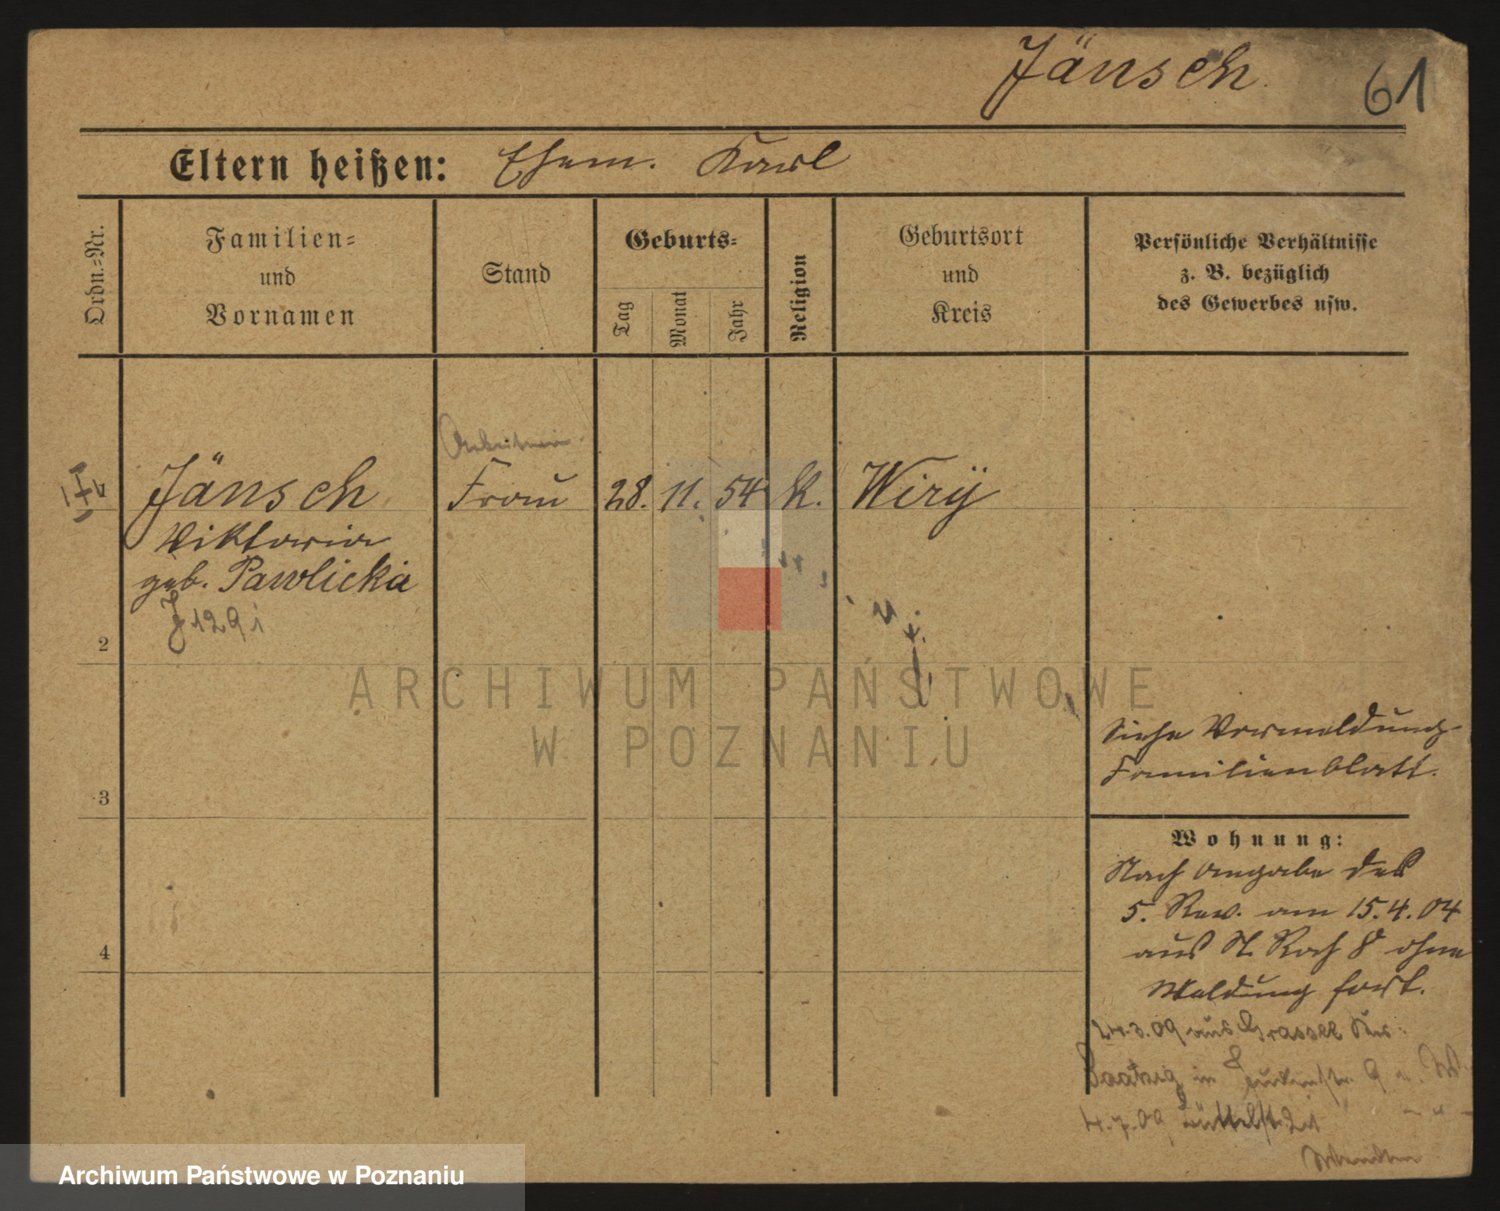 Jänsch
61
Eltern heißen: Ehem. Karl
Ordn.-Nr.
Familien-
und
Vornamen
Stand
Geburts-
Tag
Monat
Jahr
Religion
Geburtsort
und
Kreis
Persönliche Verhältnisse
z. B. bezüglich
des Gewerbes usw.
Arbeiterin
Jänsch Frau 28. 11. 54 k. Wiry
Viktoria
geb. Pawlicka
J 129 i
2
3
4
Siehe Vormeldung-
Familienblatt.
Wohnung:
Nach Angabe des
5. Rev. am 15.4.04
aus St. Roch 8 ohne
Meldung fort.
24.3.09 aus Grassee Kr.
in 9
4.7.09
ARCHIWUM PAŃSTWOWE
W POZNANIU
Archiwum Państwowe w Poznaniu